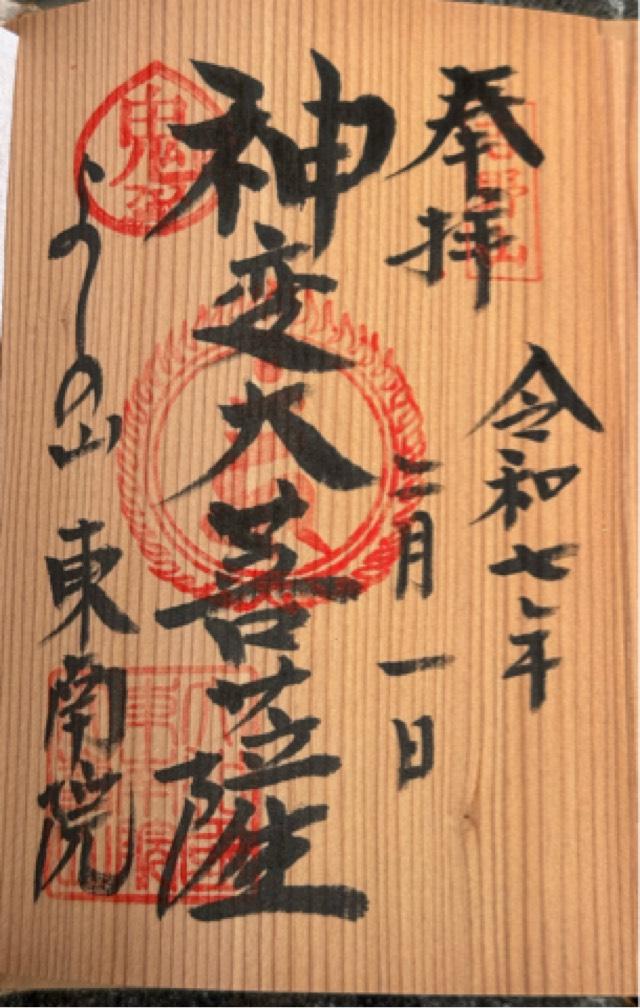 奉拝
令和七年
二月一日
神変大菩薩
よしの山 東南院